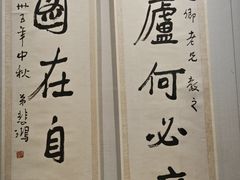 卿老兄 教之
廬何必
國在自
卅五年中秋 弟悲鴻